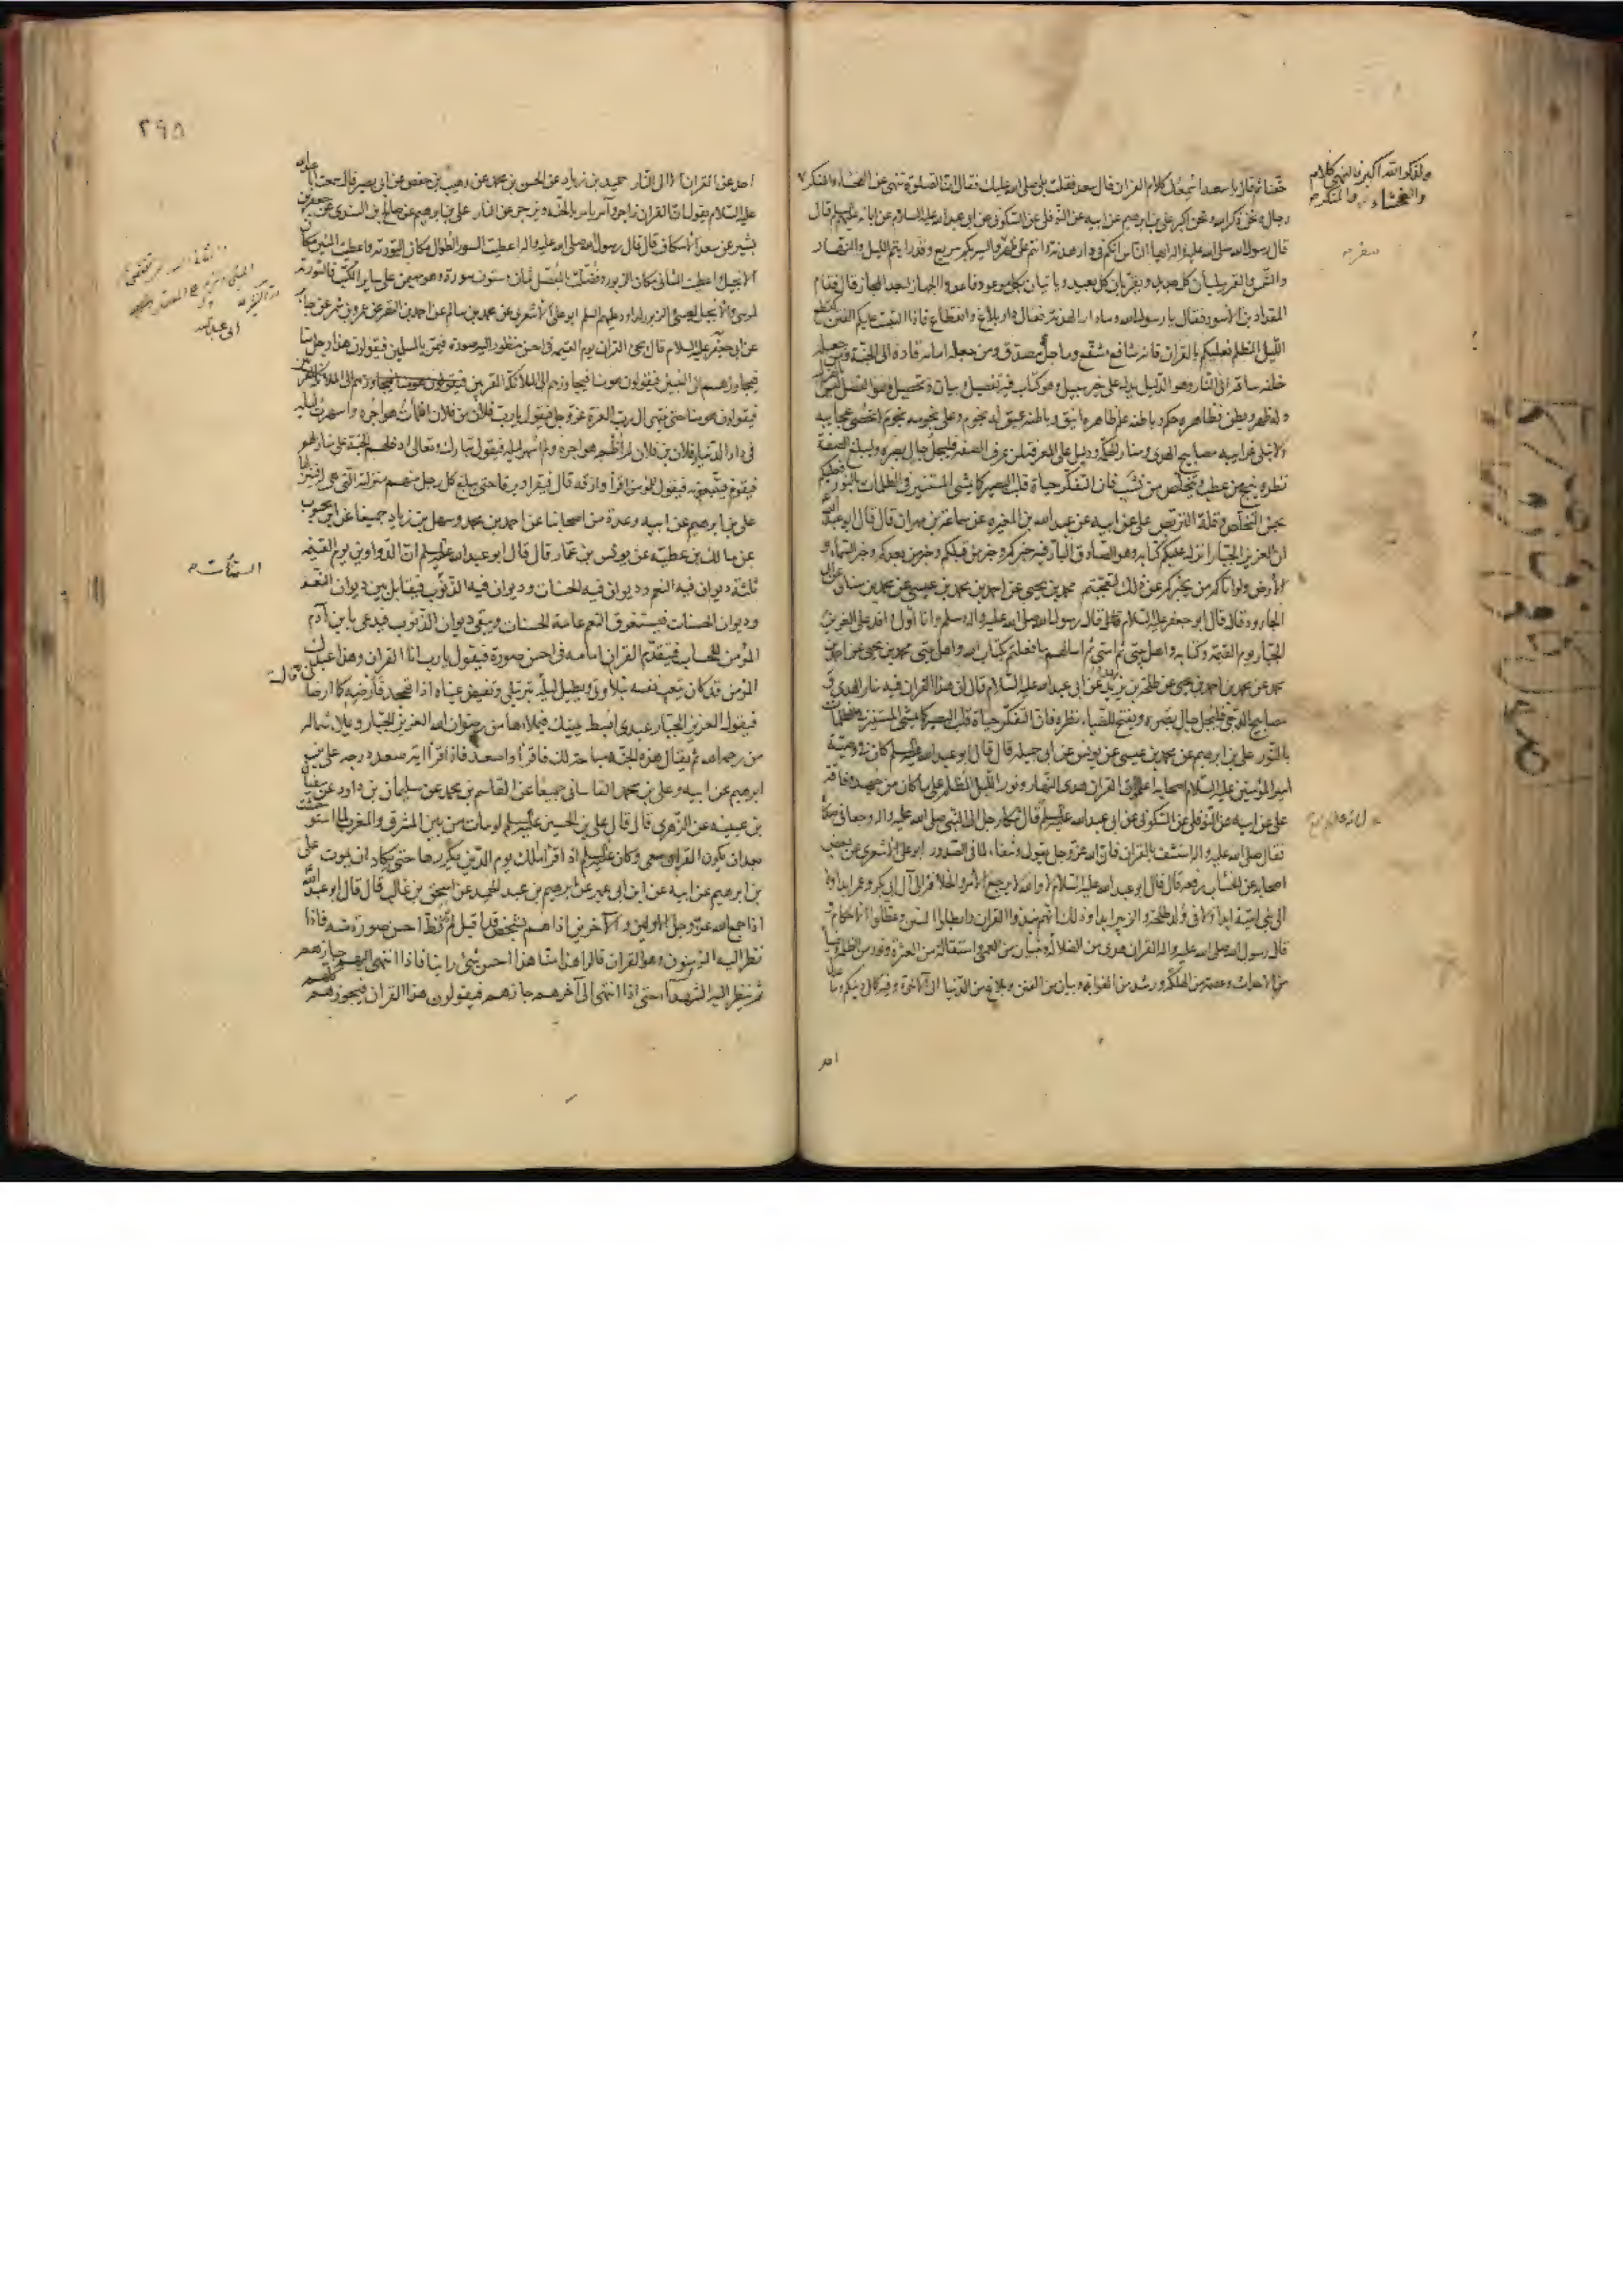 خفنا ثم قال يا سعد اسمعك كلام القران قال سعد فقلت بلى صلى الله عليك فقال ان الصلوة تنهى عن الفحشاء والمنكر
رجال ونحن ذكر الله ونحن اكبر علي بن ابرهيم عن ابيه عن النوفلي عن السكوني عن ابي عبد الله عليه السلام عن ابائه عليهم السلم قال
قال رسول الله صلى الله عليه واله ايها الناس انكم في دار هدنة وانتم على ظهر سفر والسير بكم سريع وقد رايتم الليل والنهار
والشمس والقمر يبليان كل جديد ويقربان كل بعيد وياتيان بكل موعود فاعدوا الجهاز لبعد المجاز قال فقام
المقداد بن الاسود فقال يا رسول الله وما دار الهدنة فقال دار بلاغ وانقطاع فاذا التبست عليكم الفتن كقطع
الليل المظلم فعليكم بالقران فانه شافع مشفع وماحل مصدق ومن جعله امامه قاده الى الجنة ومن جعله
خلفه ساقه الى النار وهو الدليل يدل على خير سبيل وهو كتاب فيه تفصيل وبيان وتحصيل وهو الفصل ليس
وله ظهر وبطن فظاهره حكم وباطنه علم ظاهره انيق وباطنه عميق له نجوم وعلى نجومه نجوم لا تحصى عجايبه
ولا تبلى غرايبه مصابيح الهدى ومنار الحكمة ودليل على المعرفة لمن عرف الصفة فليجل جال بصره وليبلغ الصفة
نظره ينج من عطب ويتخلص من نشب فان التفكر حياة قلب البصير كما يمشي المستنير في الظلمات بالنور فعليكم
بحسن التخلص وقلة التربص علي عن ابيه عن عبد الله بن المغيرة عن سماعة بن مهران قال قال ابو عبد الله
ان العزيز الجبار انزل عليكم كتابه وهو الصادق البار فيه خبركم وخبر من قبلكم وخبر من بعدكم وخبر السماء و
الارض ولو اتاكم من يخبركم عن ذلك لتعجبتم محمد بن يحيى عن احمد بن محمد بن عيسى عن محمد بن سنان عن ابي
الجارود قال قال ابو جعفر عليه السلام قال رسول الله صلى الله عليه واله وسلم وانا اول وافد على العزيز
الجبار يوم القيمة وكتابه واهل بيتي ثم امتي ثم اسالهم ما فعلتم بكتاب الله واهل بيتي محمد بن يحيى عن احمد بن
محمد عن محمد بن احمد بن يحيى عن طلحة بن زيد عن ابي عبد الله عليه السلام قال ان هذا القران فيه منار الهدى و
مصابيح الدجى فليجل جال بصره ويفتح للضياء نظره فان التفكر حياة قلب البصير كما يمشي المستنير في الظلمات
بالنور علي بن ابرهيم عن محمد بن عيسى عن يونس عن ابي جميلة قال قال ابو عبد الله عليه السلم كان في وصية
امير المؤمنين عليه السلام اصحابه اعلموا ان القران هدى النهار ونور الليل المظلم على ما كان من جهد وفاقة
علي عن ابيه عن النوفلي عن السكوني عن ابي عبد الله عليه السلم قال شكا رجل الى النبي صلى الله عليه واله وجعا في صدره
فقال صلى الله عليه واله استشف بالقران فان الله عز وجل يقول وشفاء لما في الصدور ابو علي الاشعري عن بعض
اصحابه عن الخشاب رفعه قال قال ابو عبد الله عليه السلام لا والله لا يرجع الامر والخلافة الى آل ابي بكر وعمر ابدا ولا
الى بني امية ابدا ولا في ولد طلحة والزبير ابدا وذلك انهم نبذوا القران وابطلوا السنن وعطلوا الاحكام و
قال رسول الله صلى الله عليه واله القران هدى من الضلالة وتبيان من العمى واستقالة من العثرة ونور من الظلمة وضياء
من الاحداث وعصمة من الهلكة ورشد من الغواية وبيان من الفتن وبلاغ من الدنيا الى الاخرة وفيه كمال دينكم وما عدل
احد
ولذكر الله اكبر فالنهي كلام
والفحشاء والمنكر
سفر
٢٩٥
احد عن القران الا الى النار حميد بن زياد عن الحسن بن محمد عن وهيب بن حفص عن ابي بصير قال سمعت ابا عبد الله
عليه السلام يقول ان القران زاجر وآمر يامر بالجنة ويزجر عن النار علي بن ابرهيم عن صالح بن السندي عن جعفر بن
بشير عن سعد الاسكاف قال قال رسول الله صلى الله عليه واله اعطيت السور الطول مكان التورية واعطيت المئين مكان
الانجيل واعطيت المثاني مكان الزبور وفضلت بالمفصل ثمان وستون سورة وهو مهيمن على ساير الكتب فالتورية
لموسى والانجيل لعيسى والزبور لداود عليهم السلم ابو علي الاشعري عن محمد بن سالم عن احمد بن النضر عن عمرو بن شمر عن جابر
عن ابي جعفر عليه السلام قال يجئ القران يوم القيمة في احسن منظور اليه صورة فيمر بالمسلمين فيقولون هذا رجل منا
فيجاوزهم الى النبيين فيقولون هو منا فيجاوزهم الى الملائكة المقربين
فيقولون هو منا حتى ينتهي الى رب العزة عز وجل فيقول يا رب فلان بن فلان اظمات هواجره واسهرت ليله
في دار الدنيا وفلان بن فلان لم اظمئ هواجره ولم اسهر ليله فيقول تبارك وتعالى ادخلهم الجنة على منازلهم
فيقوم فيتبعونه فيقول للمؤمن اقرأ وارقه قال فيقرا ويرقا حتى يبلغ كل رجل منهم منزلته التي هي له فينزلها
علي بن ابرهيم عن ابيه وعدة من اصحابنا عن احمد بن محمد وسهل بن زياد جميعا عن ابن محبوب
عن مالك بن عطية عن يونس بن عمار قال قال ابو عبد الله عليه السلم ان الدواوين يوم القيمة
ثلثة ديوان فيه النعم وديوان فيه الحسنات وديوان فيه الذنوب فيقابل بين ديوان النعم
وديوان الحسنات فيستغرق النعم عامة الحسنات ويبقى ديوان الذنوب فيدعى بابن آدم
المؤمن للحساب فيتقدم القران امامه في احسن صورة فيقول يا رب انا القران وهذا عبدك
المؤمن قد كان يتعب نفسه بتلاوتي ويطيل ليله بترتيلي وتفيض عيناه اذا تهجد فارضه كما ارضاني قال
فيقول العزيز الجبار عبدي ابسط يمينك فيملاها من رضوان الله العزيز الجبار ويملا شماله
من رحمة الله ثم يقال هذه الجنة مباحة لك فاقرا واصعد فاذا قرا آية صعد درجة علي بن
ابرهيم عن ابيه وعلي بن محمد القاساني جميعا عن القاسم بن محمد عن سليمان بن داود عن سفيان
بن عيينة عن الزهري قال قال علي بن الحسين عليه السلم لو مات من بين المشرق والمغرب لما استوحشت
بعد ان يكون القران معي وكان عليه السلم اذا قرا مالك يوم الدين يكررها حتى يكاد ان يموت علي
بن ابرهيم عن ابيه عن ابن ابي عمير عن ابرهيم بن عبد الحميد عن اسحق بن غالب قال قال ابو عبد الله
اذا جمع الله عز وجل الاولين والآخرين اذا هم بشخص قد اقبل لم ير قط احسن صورة منه فاذا
نظر اليه المؤمنون وهو القران قالوا هذا منا هذا احسن شئ راينا فاذا انتهى اليهم جازهم
ثم ينظر اليه الشهدآء حتى اذا انتهى الى آخرهم جازهم فيقولون هذا القران فيجوزهم كلهم
السيئات